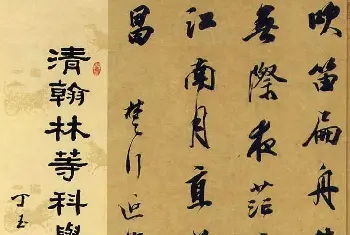 吹笛扁舟
無際夜茫
江南月直
昌
楚行
清翰林等科舉
丁玉